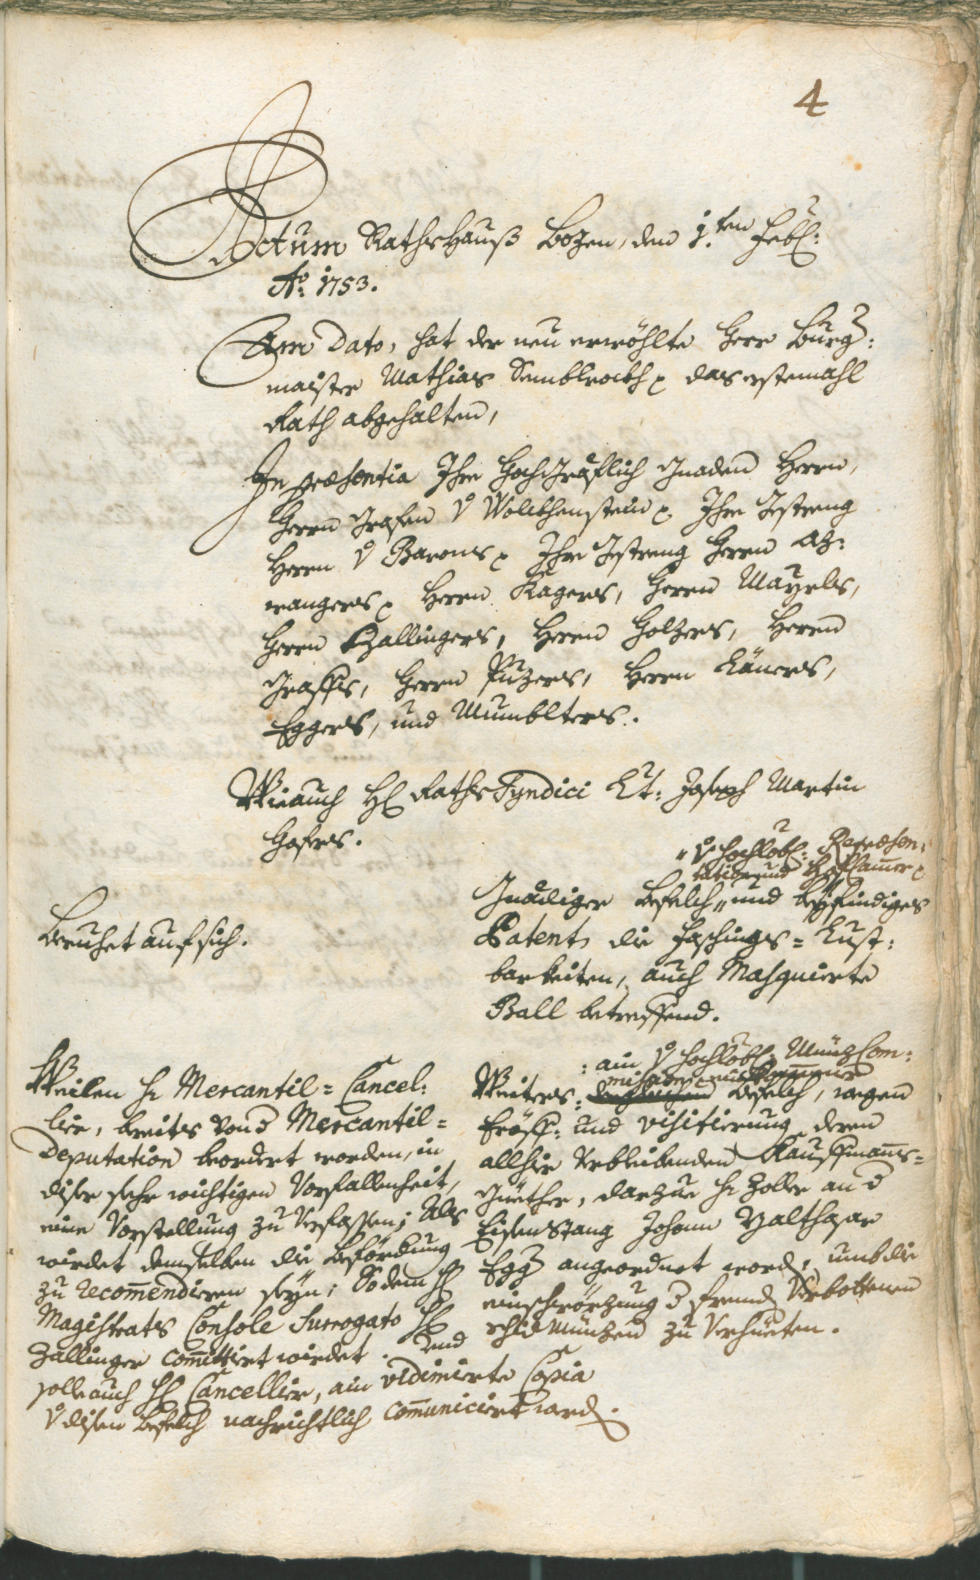 4
Actum Rathshauß Bozen, den 1.ten Febr:
Ao: 1753.
Am Dato, hat der neu erwöhlte Herr Burg:
maister Mathias das erstemahl
Rath abgehalten,
In præsentia Ihro Hochgräflich Gnaden Herrn,
Herrn Grafen v Wolckhenstein Ihro Gestreng
Herrn v Barons Ihro Gestreng Herrn Az:
wangers Herrn Kagers, Herrn Mayrls,
Herrn Zallingers, Herrn Holzers, Herrn
Graffs, Herrn Puzers, Herrn
Eggers, und Mumblters.
Wie auch H Raths Syndici Lt: Joseph Martin
Hofers.
Beruhet auf sich.
v Hochlöbl: Repræsen:
tation und Hofkamer
Gnädiger Befelch, und beyfindiges
Patent, die Faschings-Lust:
barkeiten, auch Masquierte
Ball betreffend.
Weilen H Mercantil-Cancel:
lier, bereits von d Mercantil-
Deputation beordert worden, in
diser sehr wichtigen Vorfallenheit,
eine Vorstellung zu verfassen; Als
wirdet demselben die Beförderung
zu recomendieren seyn; So dem H
Magistrats Console Surrogato H
Zallinger comittirt wirdet. Und
solle auch H Cancellier, ain vidimierte Copia
v disen Befelch nachrichtlich comuniciert werd.
: ain v Hochlöbl: Münz Com:
mission
Weiters: Befelch, wegen
Eröff: und Visitierung deren
allhir verbleibenden Kauffmans-
Güether, darzue H Zoller an d
Eisenstang Johann Balthasar
Egg angeordnet word, umb die
einschwörzung d frembd verbottenen
Münzen zu verhüeten.